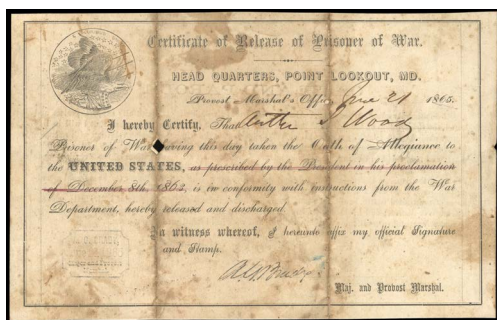 Certificate of Release of Prisoner of War.
HEAD QUARTERS, POINT LOOKOUT, MD.
Provost Marshal's Office, June 21 1865.
I hereby Certify, That S Wood
Prisoner of War having this day taken the Oath of Allegiance to
the UNITED STATES, as prescribed by the President in his proclamation
of December 8th, 1863, is in conformity with instructions from the War
Department, hereby released and discharged.
In witness whereof, I hereunto affix my official Signature
and Stamp.
Maj. and Provost Marshal.